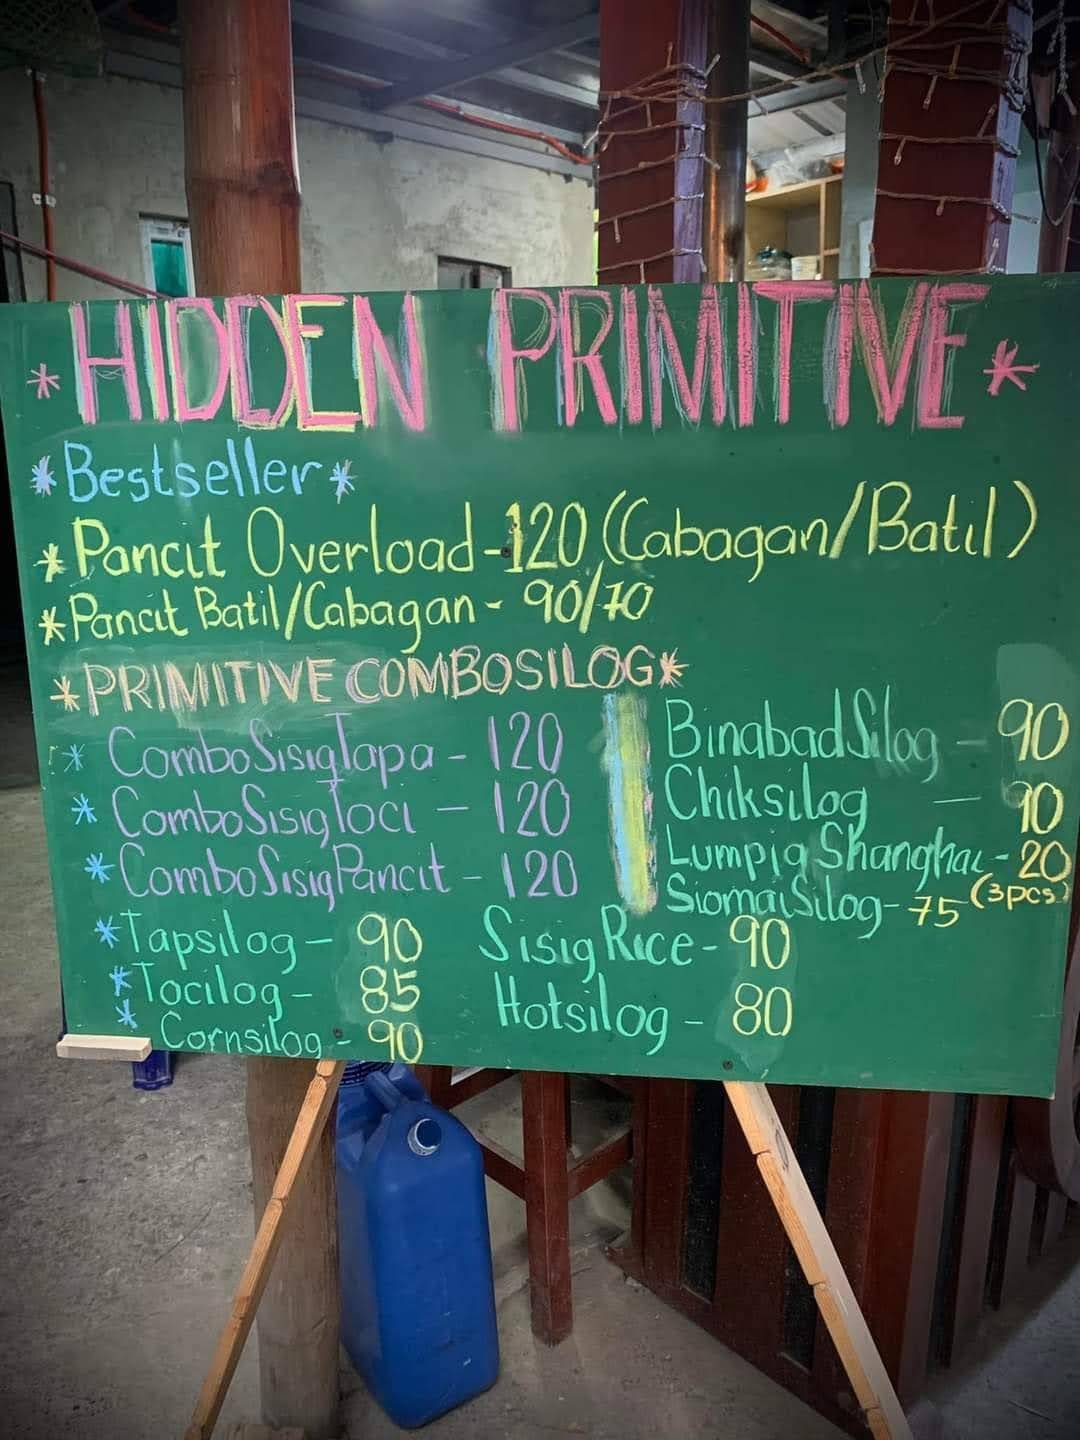 * HIDDEN PRIMITIVE *
* Bestseller *
* Pancit Overload - 120 (Cabagan/Batil)
* Pancit Batil/Cabagan - 90/70
* PRIMITIVE COMBOSILOG *
* ComboSisigTapa - 120
* ComboSisigToci - 120
* ComboSisigPancit - 120
BinabadSilog - 90
Chiksilog - 90
Lumpia Shanghai - 20
(3pcs)
SiomaiSilog - 75
* Tapsilog - 90
* Tocilog - 85
* Cornsilog - 90
Sisig Rice - 90
Hotsilog - 80